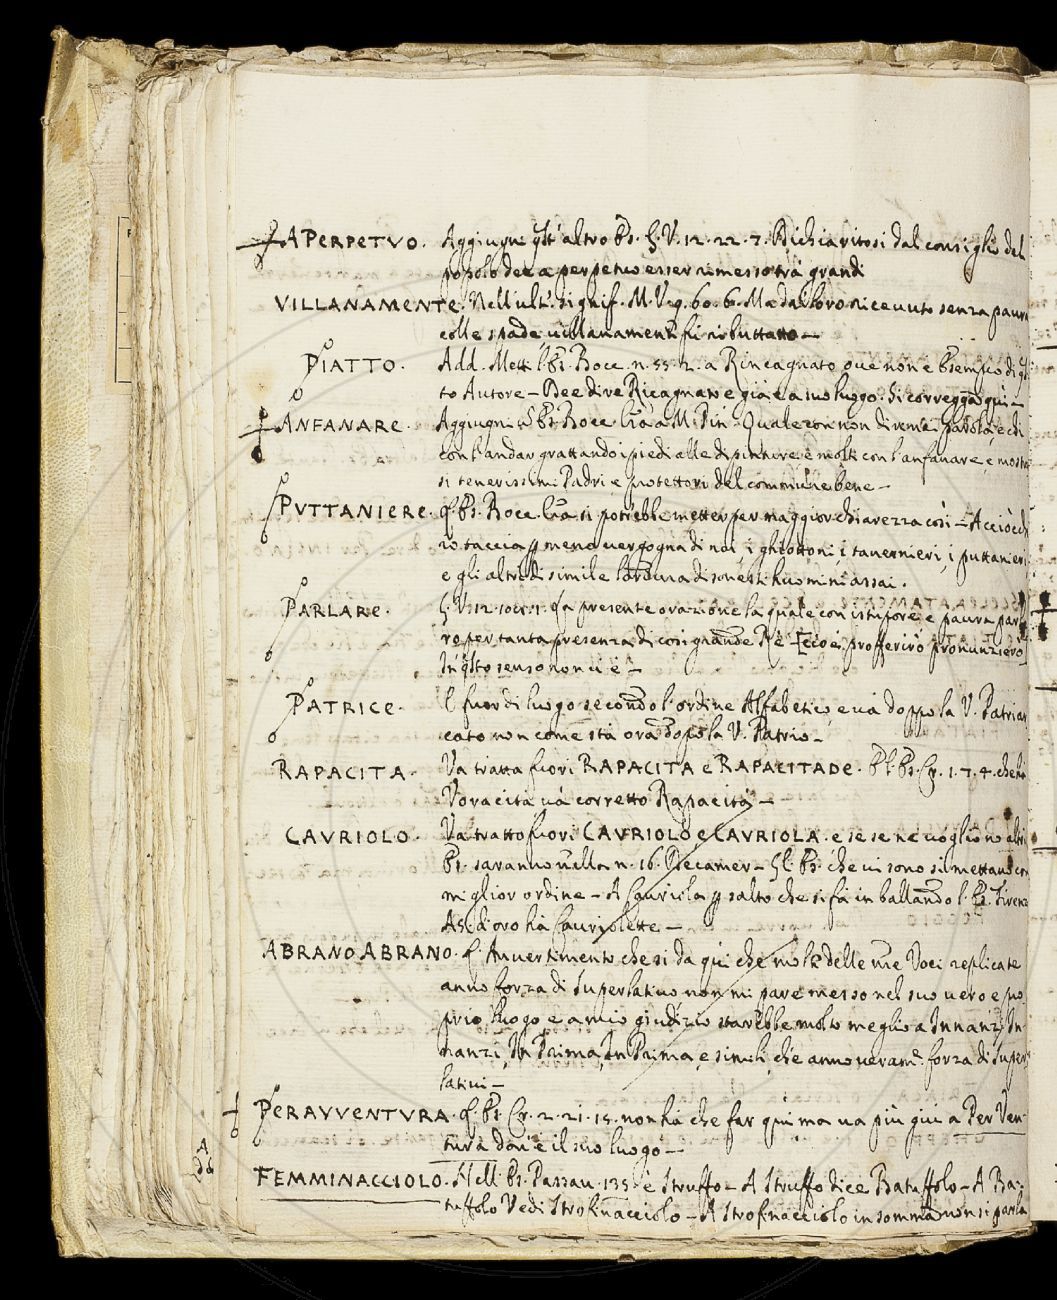 APERPETVO. Aggiugni qst' altro Es. G.V. 12. 22. 7. Richiaritosi dal consiglio del
popolo dee a perpetuo esser rimesso trà grandi
VILLANAMENTE. Nell'ult. signif. M.V. 9. 60. Ma da loro riceuuto senza paura
colle spade uillanamente fù ributtato —
PIATTO. Add. Mett. l'Es. Bocc. n. 55. 2. a Rincagnato oue non è Esempio di qs
to Autore — Dee dire Ricagnato e già è a suo luogo. Si corregga qui —
ANFANARE. Aggiugni Es. Bocc. a M. Pin. Quale con non diremei parola, e chi
con l'andar grattando i piedi alle dipinture e molti con l'anfanare e mostrar
si tenerissimi Padri e protettori del commune bene —
PVTTANIERE. Es. Bocc. si potrebbe metter per maggior chiarezza così — Acciocch
io taccia p meno uergogna di noi, i ghiottoni, i tauernieri, i puttanieri
e gli altri di simile lordura disonesti huomini assai.
PARLARE. G.V. 12. La presente orazione la quale con istupore, e paura par
ro per tanta presenza di così grande Rè — [cioè proffeririò pronunzierò
In qsto senso non ui è —
PATRICE. È fuor di luogo secondo l'ordine Alfabetico e uà doppo la V. Patriar
cato non come stà ora dopo la V. Patrio —
RAPACITA. Va tratta fuori RAPACITA e RAPACITADE. Es. Cr. 1. 7. 4. che hà
Voracità uà corretto Rapacità —
CAVRIOLO. Va tratto fuori CAVRIOLO e CAVRIOLA. e se se ne uogliono altri
Es. saranno nella n. 16. Decamer — Gl'Es. che ui sono si mettano con
miglior ordine — A Cauriola p salto che si fà in ballando l'Es. Firenz
As. d'oro hà Cauriolette —
ABRANO ABRANO. L'Auuertimento che si da qui che molte delle nre Voci replicate
anno forza di Superlatiuo non mi pare messo nel suo uero e pro
prio luogo e a mio giudizio starebbe molto meglio a Innanzi In
nanzi, In Prima, In Prima, e simili, che anno ueram.e forza di super
latiui —
PERAVVENTVRA. L'Es. Cr. 2. 21. 15. non hà che far qui ma ua più giù a Per Ven-
tura dou'è il suo luogo —
A
dd
FEMMINACCIOLO. Nell'Es. Passau. 135. è Struffo — A Struffo dice Batuffolo — A Ba-
tuffolo Vedi Strofinacciolo — A Strofinacciolo in somma non si parla